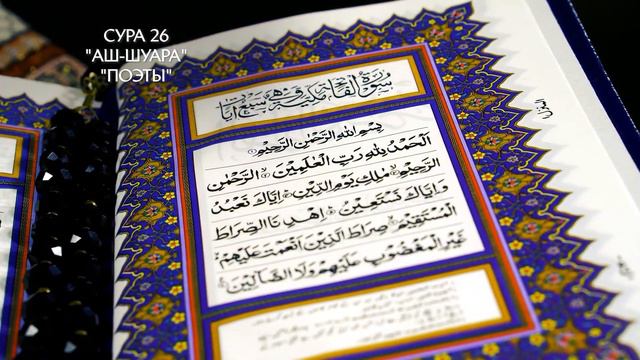 СУРА 26
"АШ-ШУАРА"
"ПОЭТЫ"
سورة الفاتحة مكية وهي سبع آيات
بِسْمِ اللهِ الرَّحْمٰنِ الرَّحِيْمِ
اَلْحَمْدُ لِلّٰهِ رَبِّ الْعٰلَمِيْنَ الرَّحْمٰنِ
الرَّحِيْمِ مٰلِكِ يَوْمِ الدِّيْنِ اِيَّاكَ نَعْبُدُ
وَاِيَّاكَ نَسْتَعِيْنُ اِهْدِنَا الصِّرَاطَ
الْمُسْتَقِيْمَ صِرَاطَ الَّذِيْنَ اَنْعَمْتَ عَلَيْهِمْ
غَيْرِ الْمَغْضُوْبِ عَلَيْهِمْ وَلَا الضَّآلِّيْنَ